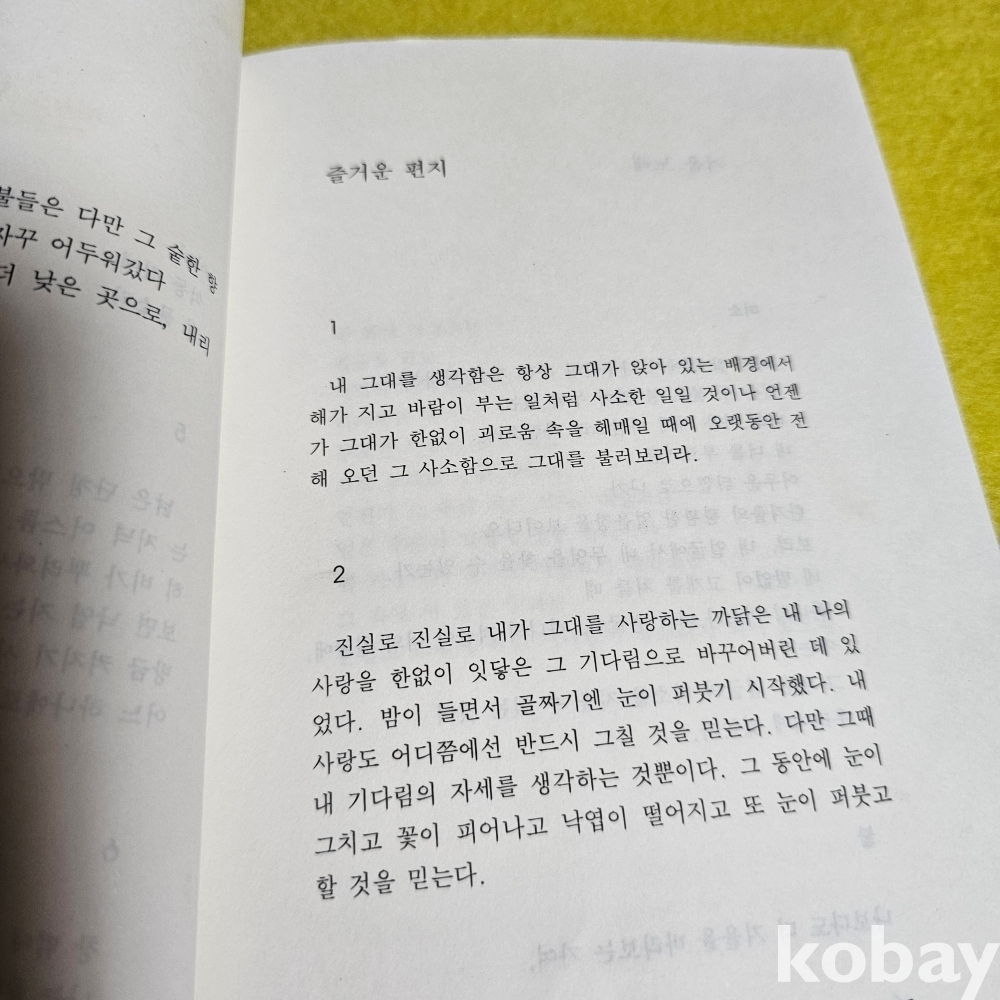 불들은 다만 그 숱한 향
자꾸 어두워갔다
더 낮은 곳으로, 내리
즐거운 편지
1
내 그대를 생각함은 항상 그대가 앉아 있는 배경에서
해가 지고 바람이 부는 일처럼 사소한 일일 것이나 언젠
가 그대가 한없이 괴로움 속을 헤매일 때에 오랫동안 전
해 오던 그 사소함으로 그대를 불러보리라.
2
진실로 진실로 내가 그대를 사랑하는 까닭은 내 나의
사랑을 한없이 잇닿은 그 기다림으로 바꾸어버린 데 있
었다. 밤이 들면서 골짜기엔 눈이 퍼붓기 시작했다. 내
사랑도 어디쯤에선 반드시 그칠 것을 믿는다. 다만 그때
내 기다림의 자세를 생각하는 것뿐이다. 그 동안에 눈이
그치고 꽃이 피어나고 낙엽이 떨어지고 또 눈이 퍼붓고
할 것을 믿는다.
kobay